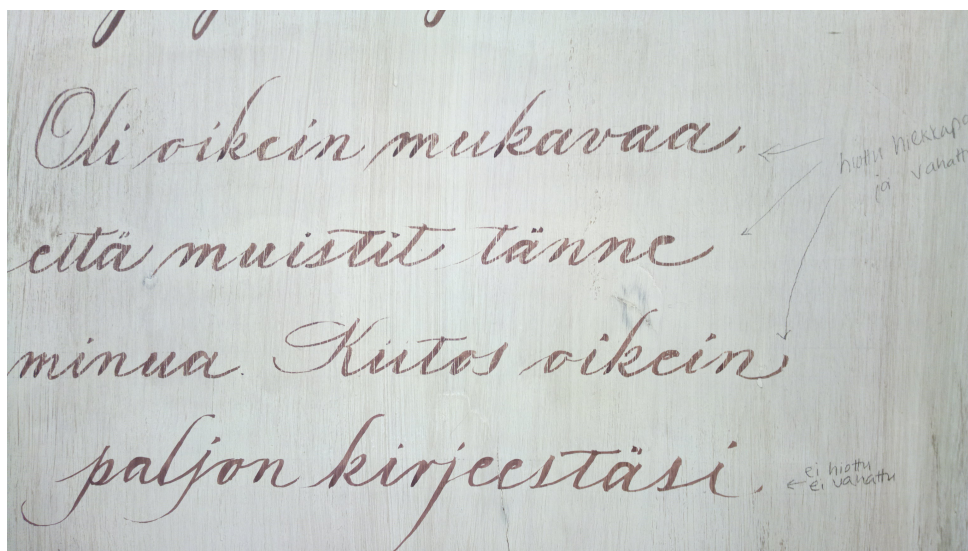 Oli oikein mukavaa,
että muistit tänne
minua. Kiitos oikein
paljon kirjeestäsi.
hiottu
ja
ei hiottu
ei vahattu